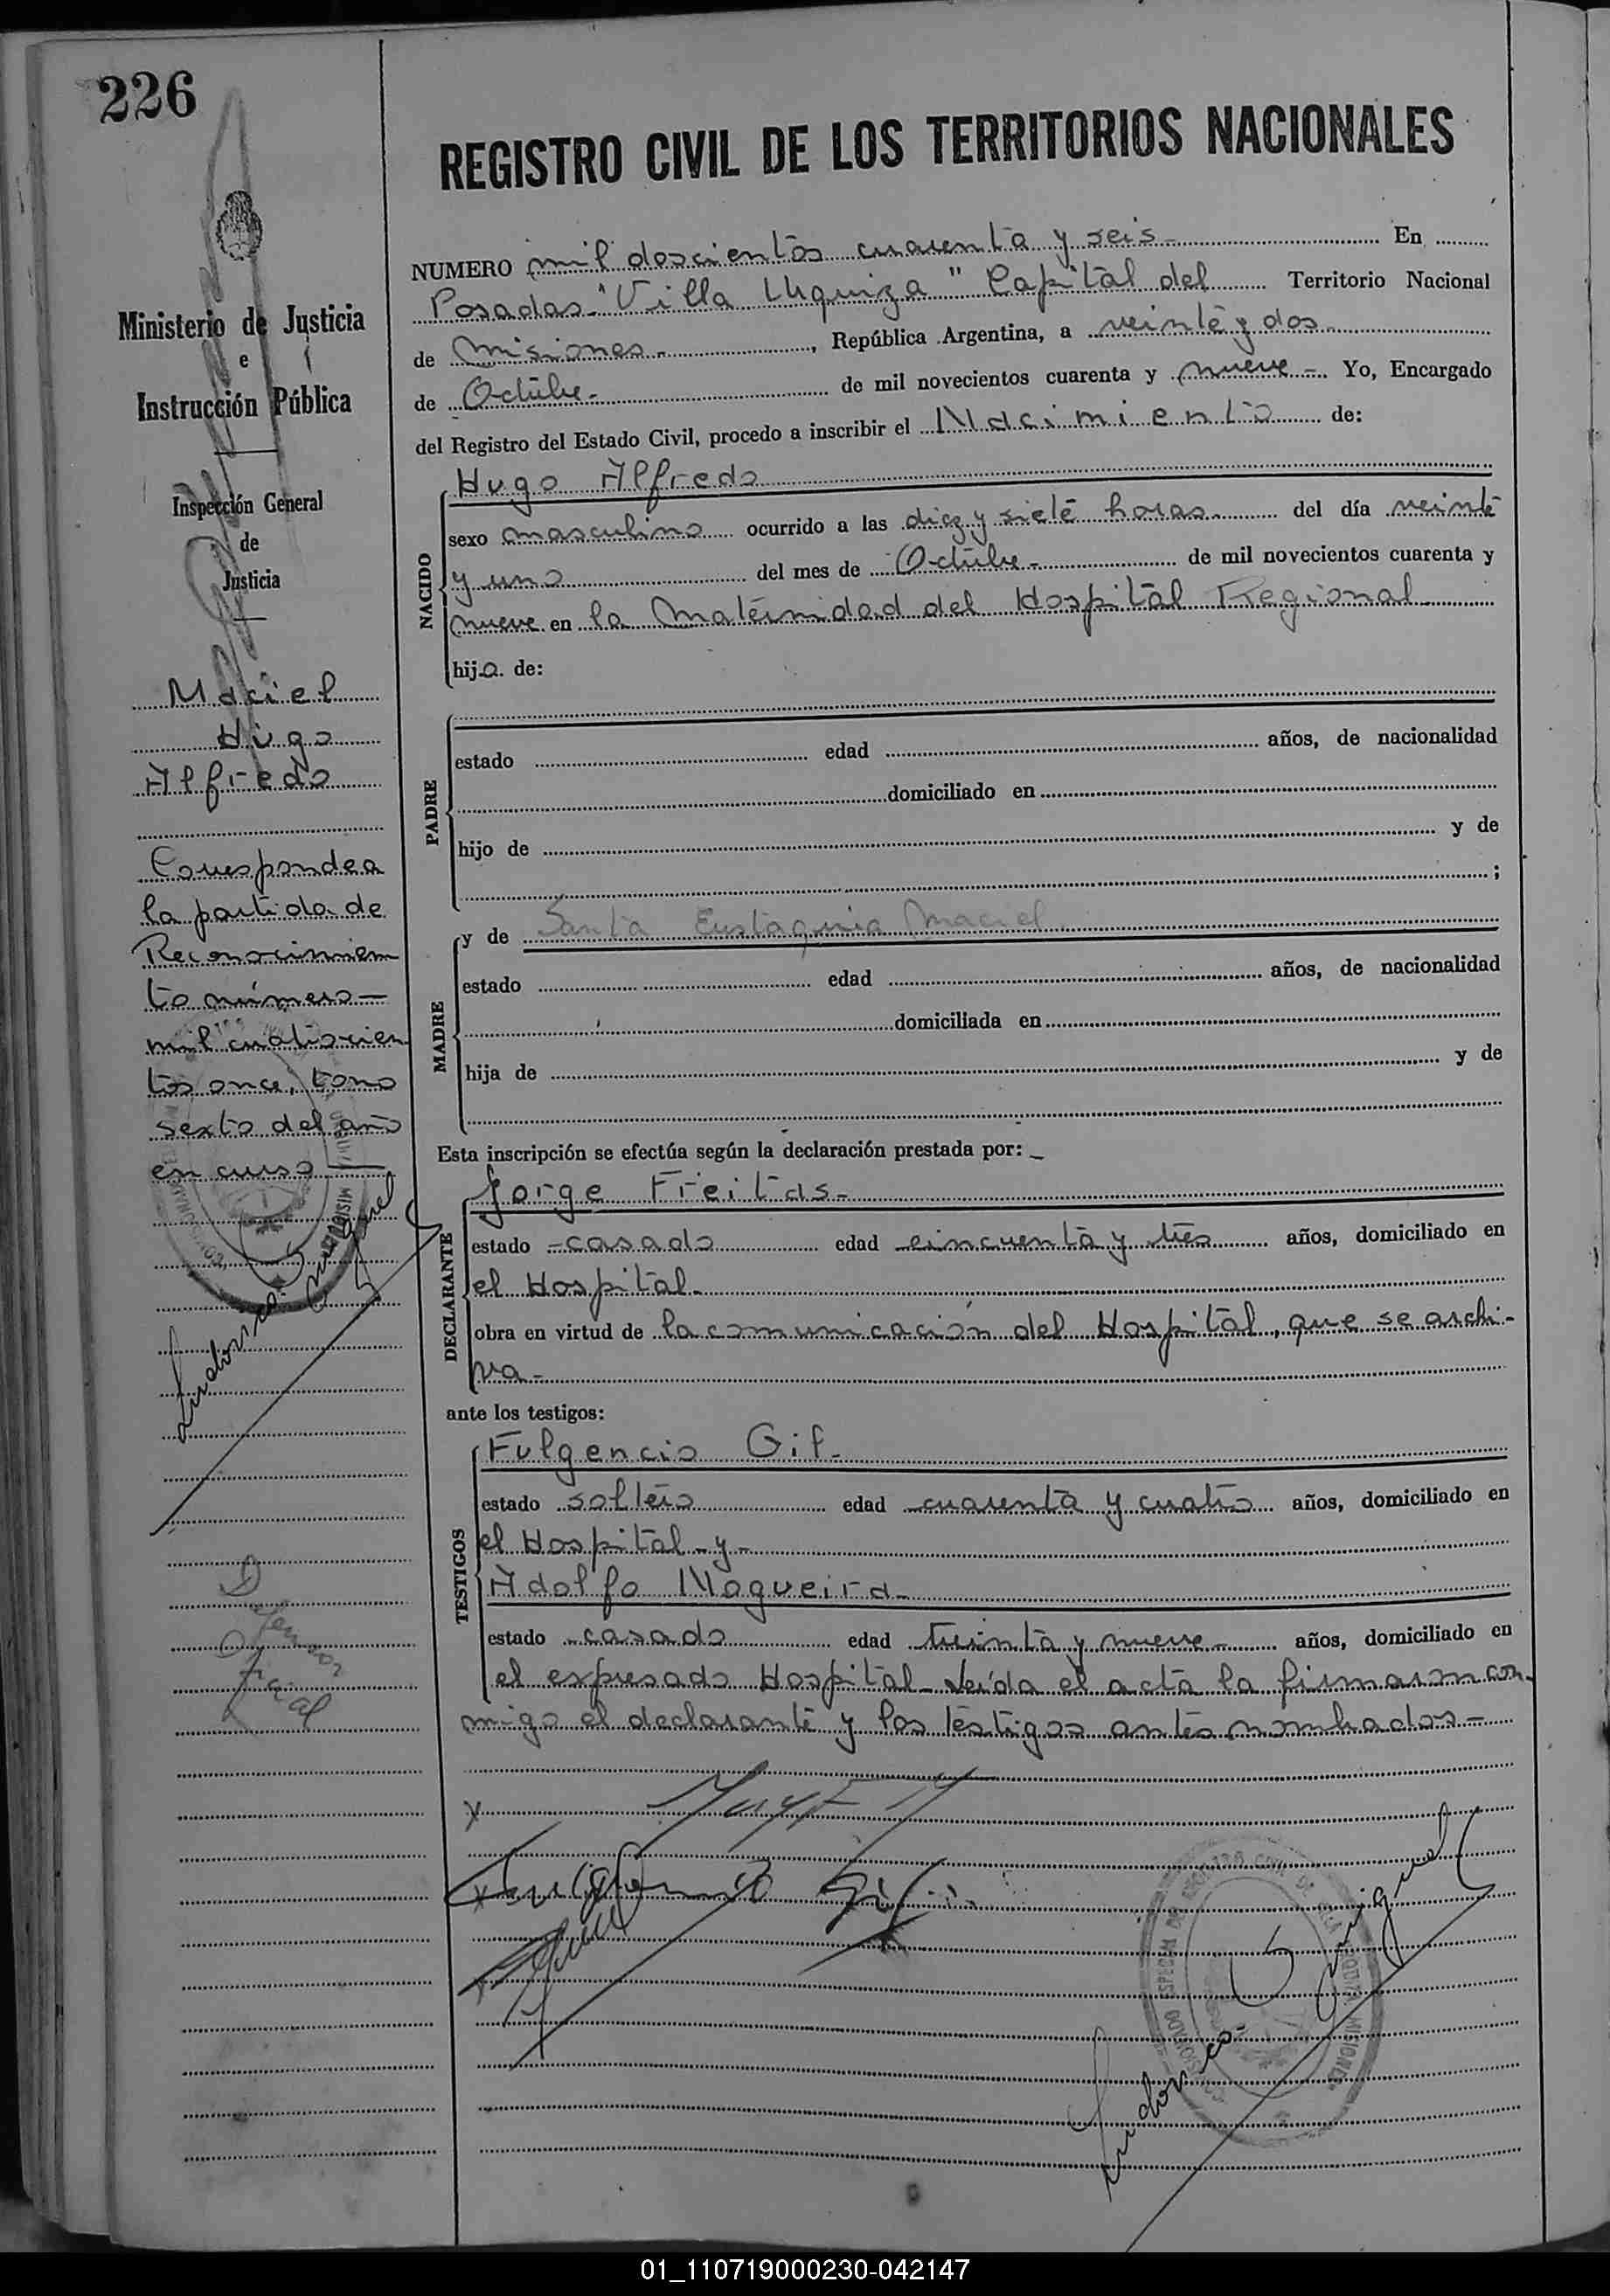 226
REGISTRO CIVIL DE LOS TERRITORIOS NACIONALES
Ministerio de Justicia
e
Instrucción Pública
Inspección General
de
Justicia
Maciel
Hugo
Alfredo
Corresponde a
la partida de
Reconocimien
to número —
mil cuatrocien
tos once, tomo
sexto del año
en curso —
Defensor
Oficial
NUMERO mil doscientos cuarenta y seis - En
Posadas "Villa Urquiza" Capital del Territorio Nacional
de Misiones - , República Argentina, a veinte y dos
de Octubre - de mil novecientos cuarenta y nueve - Yo, Encargado
del Registro del Estado Civil, procedo a inscribir el Nacimiento de:
NACIDO
Hugo Alfredo
sexo masculino ocurrido a las diez y siete horas del día veinte
y uno del mes de Octubre - de mil novecientos cuarenta y
nueve en la Maternidad del Hospital Regional
hijo de:
PADRE
estado edad años, de nacionalidad
domiciliado en
hijo de y de
;
MADRE
y de Santa Eustaquia Maciel
estado edad años, de nacionalidad
domiciliada en
hija de y de
Esta inscripción se efectúa según la declaración prestada por: _
DECLARANTE
Jorge Freitas -
estado - casado edad cincuenta y tres años, domiciliado en
el Hospital -
obra en virtud de la comunicación del Hospital, que se archi-
va -
ante los testigos:
TESTIGOS
Fulgencio Gil -
estado soltero edad cuarenta y cuatro años, domiciliado en
el Hospital - y -
Adolfo Nogueira -
estado - casado edad treinta y nueve - años, domiciliado en
el expresado Hospital - Leída el acta la firmaron con-
migo el declarante y los testigos antes nombrados -
Fulgencio Gil
01_110719000230-042147